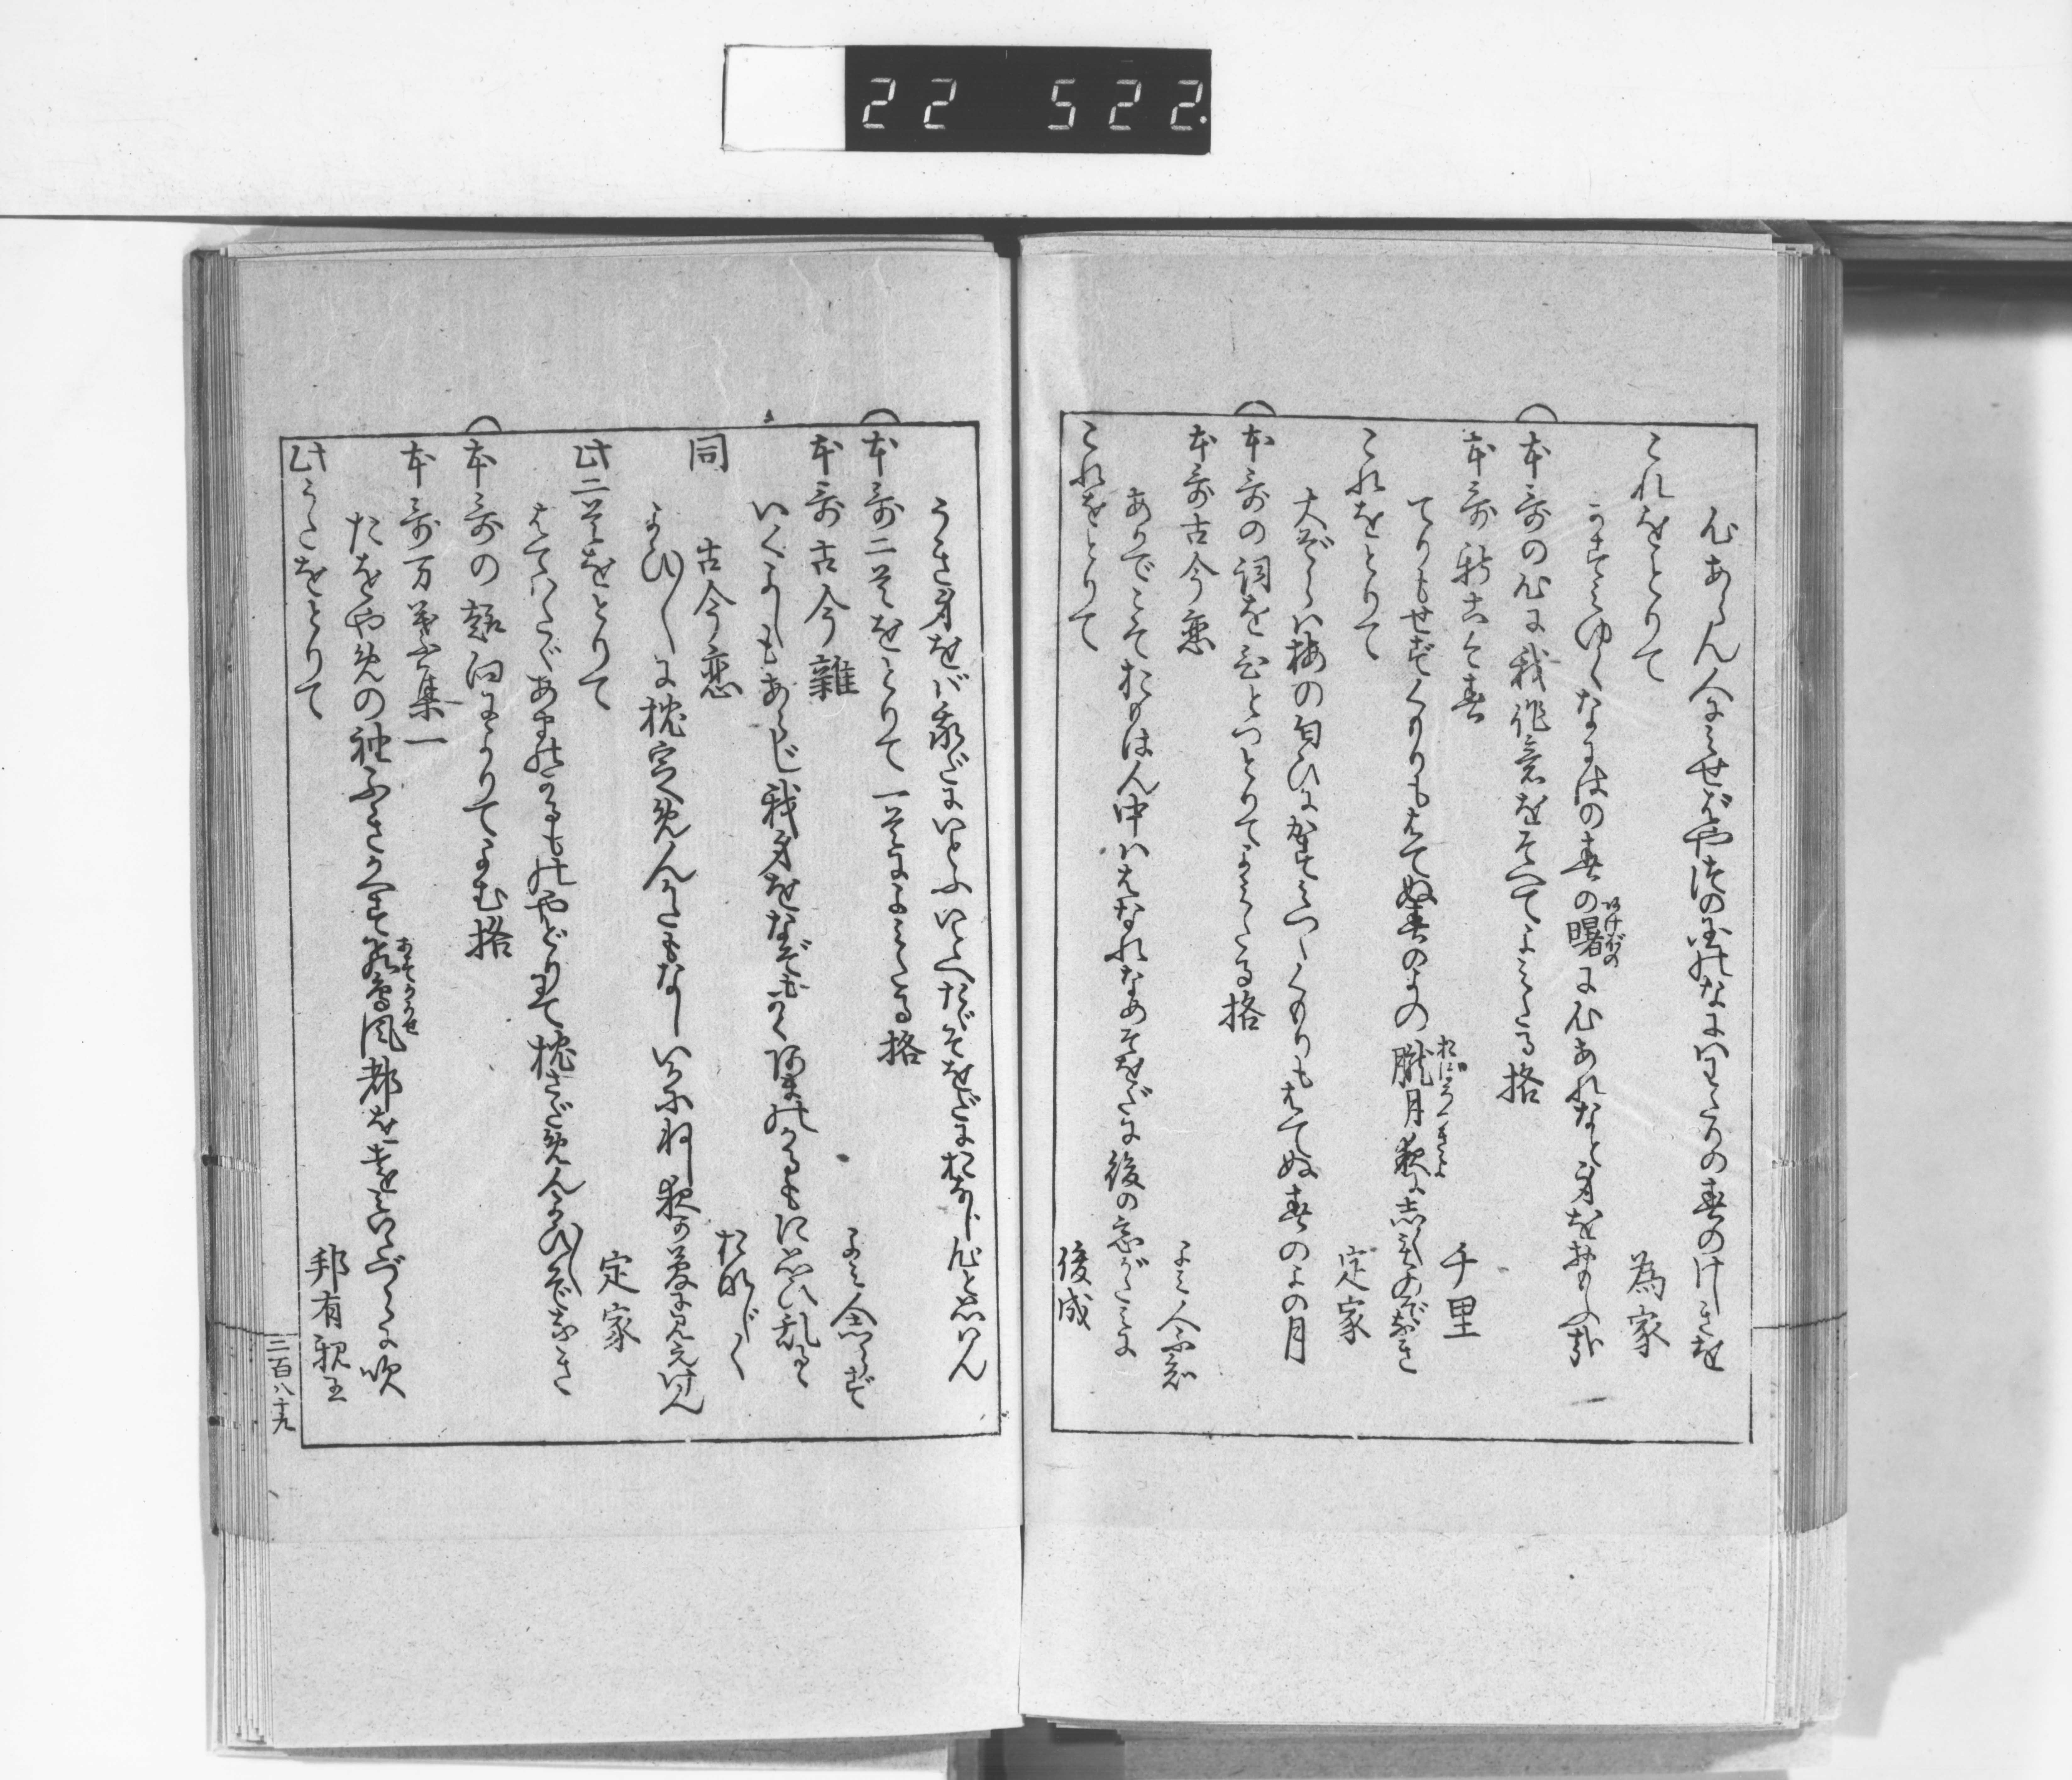 22 522.
心あらん人にみせばや津の国のなにはわたりの春のけしきを
これをとりて　為家
かすみゆくなにはの春の曙に心あれなと身を思ふ哉
あけぼの
本哥の心に我作意をそへてよみたる格
本哥 新古今春　千里
てりもせずくもりもはてぬ春のよの朧月夜にしくものぞなき
おぼろづきよ
これをとりて　定家
大ぞらは梅の匂ひにかすみつゝくもりもはてぬ春のよの月
本哥の詞を一ひとつとりてよみたる格
本哥古今恋　よみ人不知
ありぞこそ
これをとりて　俊成
うき身をば我だにいとふいとへたゞそをだにおなじ心と思はん
本哥二首をとりて一首によみたる格
本哥古今雑　よみ人しらず
いくよしもあらじ我身をなぞもかくあまのかるもに思ひ乱るゝ
同　古今恋　おなじく
よひ〳〵に枕定めんかたもなしいかにね夜か夢に見えけん
此二首をとりて　定家
はてはたゞあまのかるもをやどりにて枕さだめんよひ〳〵ぞなき
本哥の題詞によりてよむ格
本哥万葉集一
たをやめの袖ふきかへす飛鳥風都を遠みいたづらに吹
あすかかぜ
此うたをとりて　邦有親王
三百八十九